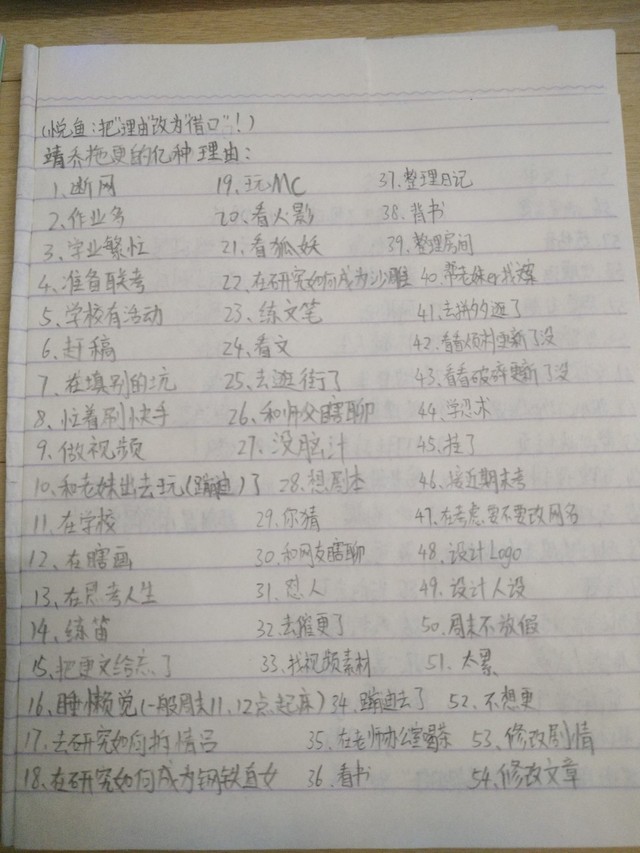 (悦鱼:把"理由"改为"借口"!)
靖乔拖更的亿种理由:
1、断网 19、玩MC 37、整理日记
2、作业多 20、看火影 38、背书
3、学业繁忙 21、看狐妖 39、整理房间
4、准备联考 22、在研究如何成为沙雕 40、帮老妹er找
5、学校有活动 23、练文笔 41、去拼夕夕逛了
6、赶稿 24、看文 42、看看更新了没
7、在填别的坑 25、去逛街了 43、看看破碎更新了没
8、忙着刷快手 26、和师父瞎聊 44、学忍术
9、做视频 27、没脑汁 45、挂了
10、和老妹出去玩(蹦迪)了 28、想剧本 46、接近期末考
11、在学校 29、你猜 47、在考虑要不要改网名
12、在瞎画 30、和网友瞎聊 48、设计Logo
13、在思考人生 31、怼人 49、设计人设
14、练笛 32、去催更了 50、周末不放假
15、把更文给忘了 33、找视频素材 51、太累
16、睡懒觉(一般周末11、12点起床) 34、蹦迪去了 52、不想更
17、去研究如何拆情侣 35、在老师办公室喝茶 53、修改剧情
18、在研究如何成为钢铁直女 36、看书 54、修改文章